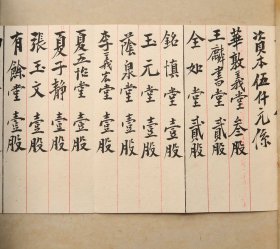 資本伍仟元係
華敦義堂叁股
王麟書堂貳股
全如堂貳股
銘慎堂壹股
玉元堂壹股
蔭泉堂壹股
李義宏堂壹股
夏五詒堂壹股
夏子静壹股
張玉文壹股
有餘堂壹股